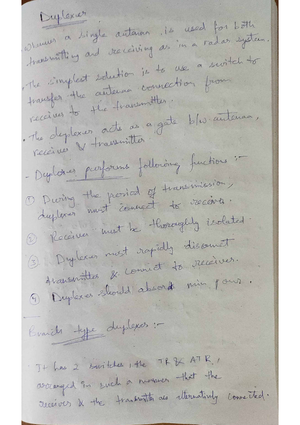 Duplexer
Whenever a single antenna is used for both
transmitting and receiving as in a radar system.
• The simplest solution is to use a switch to
transfer the antenna connection from
receiver to the transmitter.
• The duplexer acts as a gate b/w antenna,
receiver & transmitter
- Duplexer performs following functions :-
① During the period of transmission,
duplexer must connect to
② Receiver must be thoroughly isolated.
③ Duplexer must rapidly disconnect
transmitter & connect to receiver.
④ Duplexer should absorb min. power.
Branch type duplexer :-
It has 2 switches, the TR & ATR,
arranged in such a manner that the
receiver & the transmitter are alternatively connected.